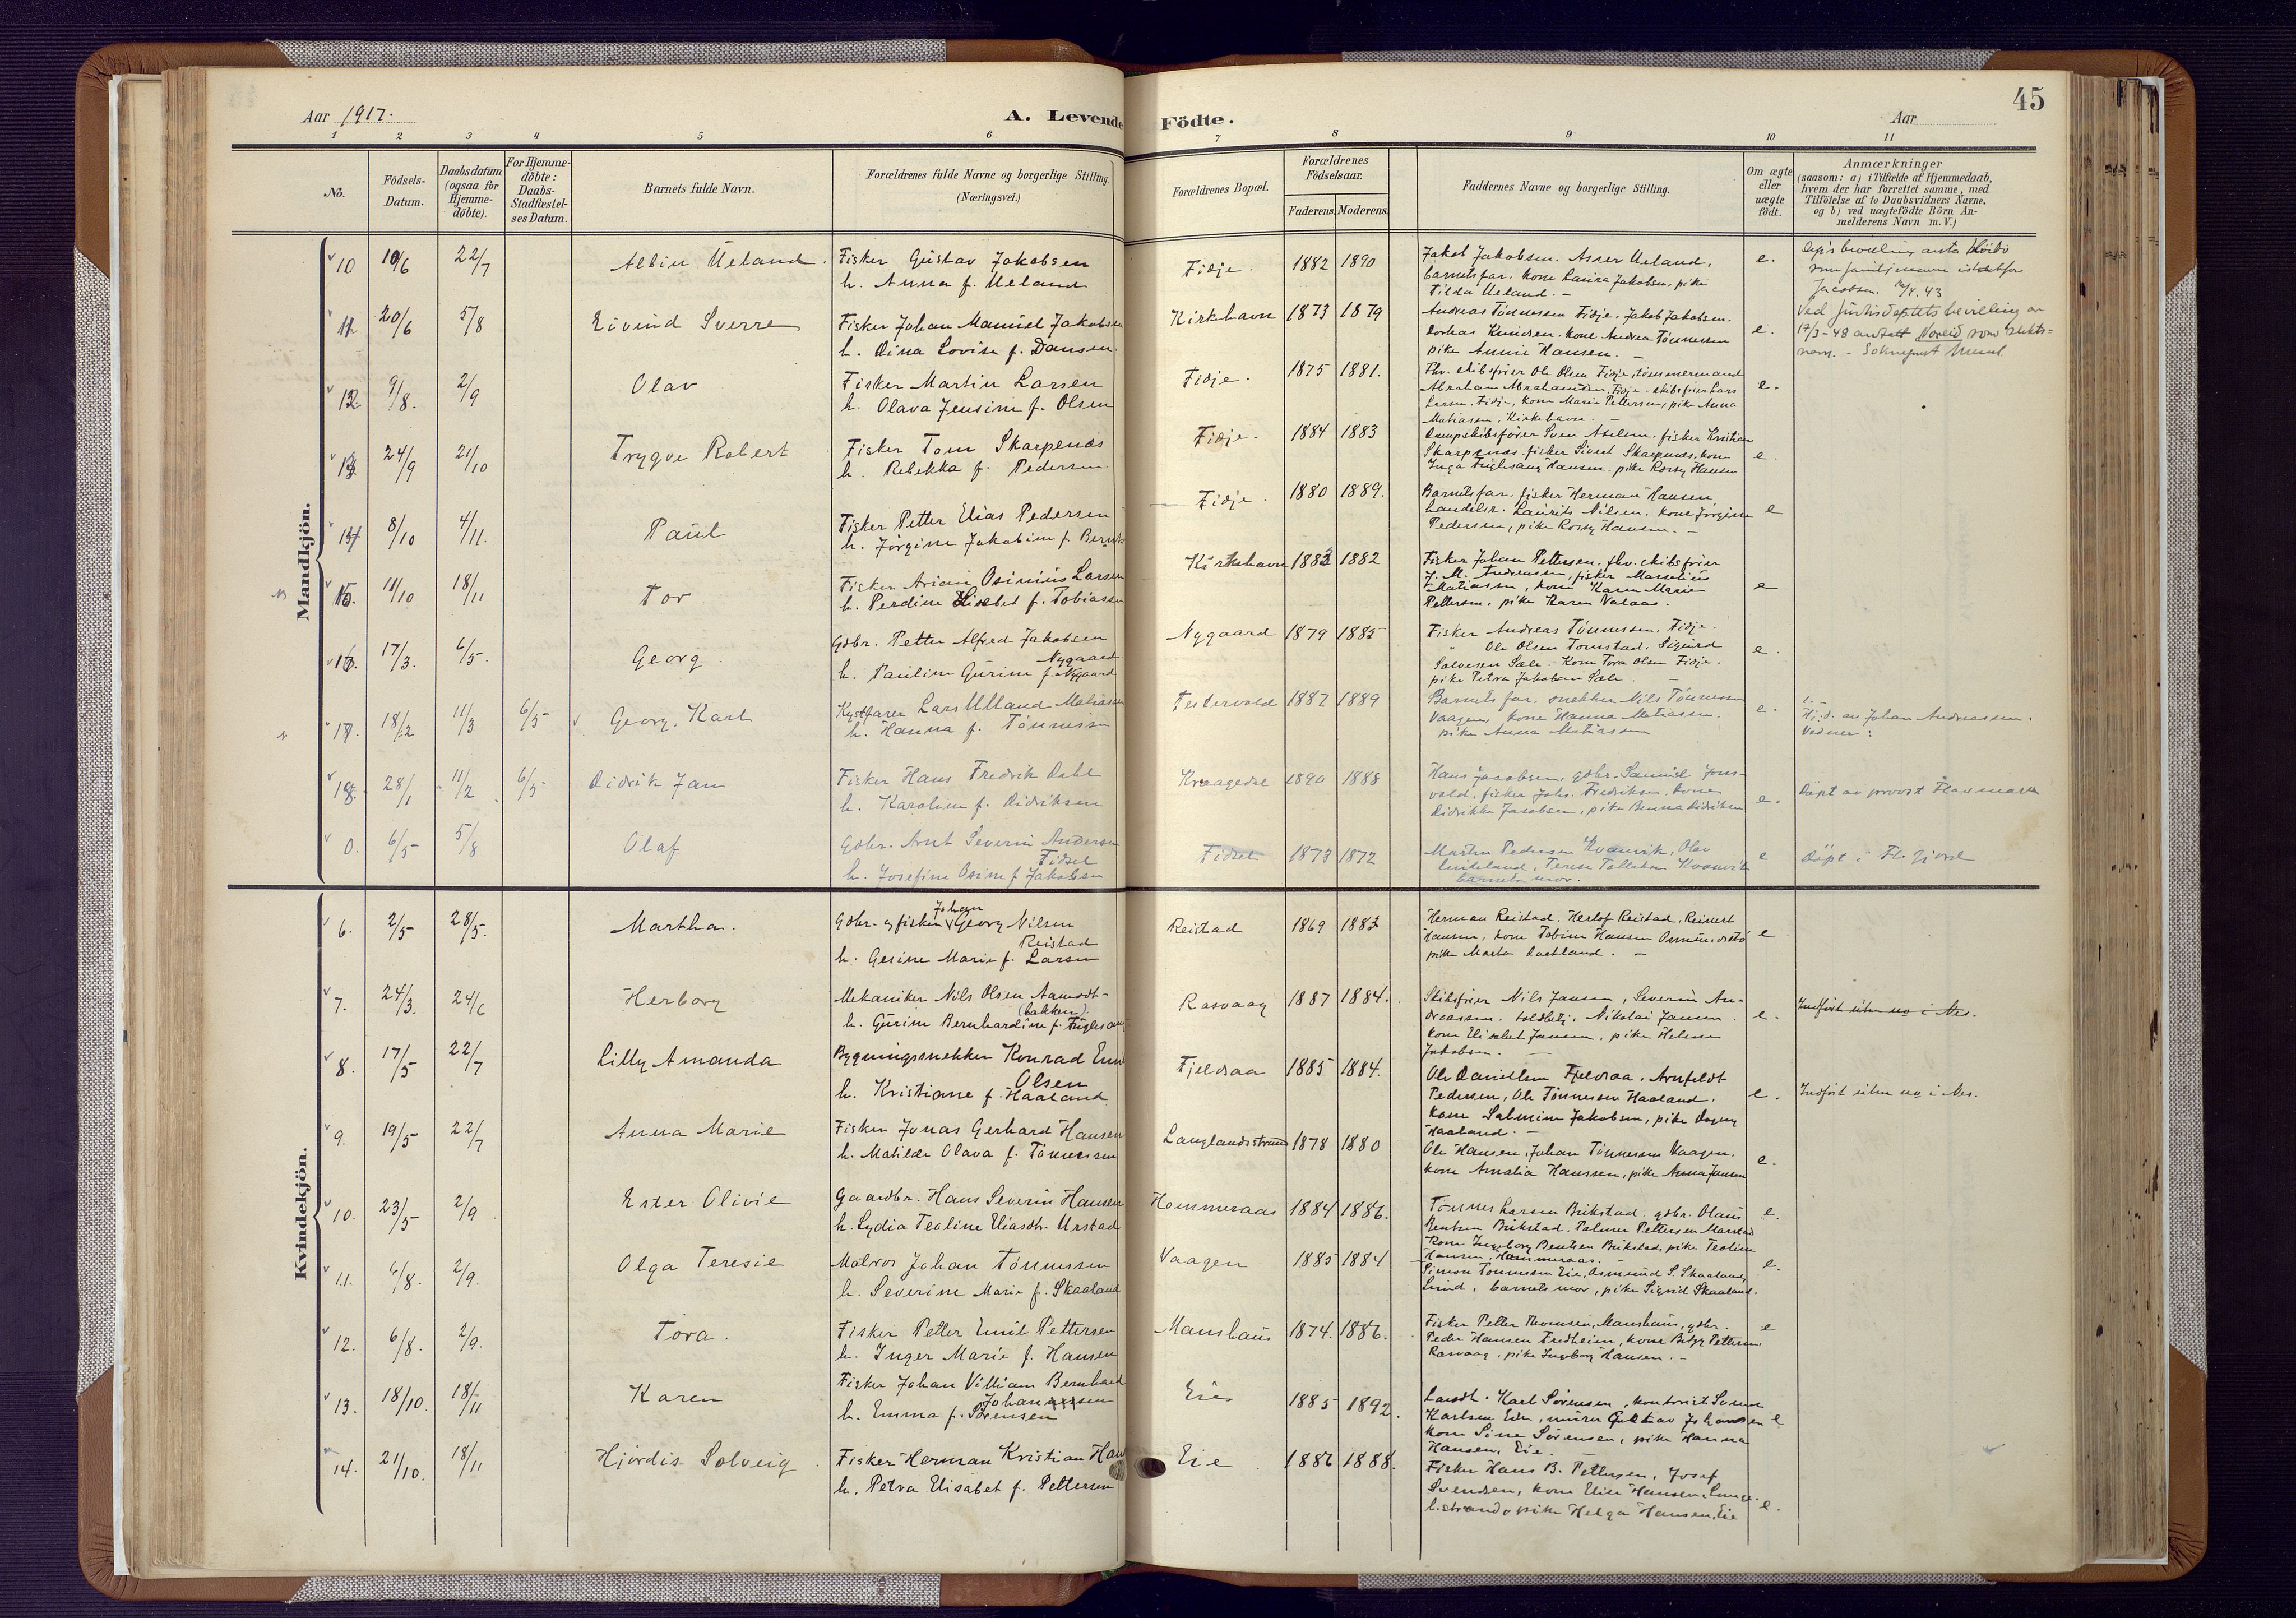 45
Aar 1917.
A. Levende Födte.
Aar
1 2 3 4 5 6 7 8 9 10 11
No.
Födsels-Datum.
Daabsdatum (ogsaa for Hjemme-döbte).
For Hjemme-döbte: Daabs-Stadfæstel-ses Datum.
Barnets fulde Navn.
Forældrenes fulde Navne og borgerlige Stilling.
(Næringsvei.)
Forældrenes Bopæl.
Forældrenes Födselsaar.
Faderens. Moderens.
Faddernes Navne og borgerlige Stilling.
Om ægte eller uægte födt.
Anmærkninger
(saasom: a) i Tilfælde af Hjemmedaab,
hvem der har forrettet samme, med
Tilföielse af to Daabsvidners Navne,
og b) ved uægtefödte Börn An-
melderens Navn m. V.)
Mandkjön.
10 10/6 22/7 Albin Ueland. Fisker Gustav Jakobsen Fidje. 1882 1890 Jakob Jakobsen. Asser Ueland, e.
h. Anna f. Ueland barnets far. Kone Laura Jakobsen, pike
Tilda Ueland. –
som familienavn istedetfor
Jacobsen. 43
11 20/6 5/8 Eivind Sverre Fisker Johan Manuel Jakobsen Kirkhavn 1873 1879 Andreas Tönnessen Fidje. Jakob Jakobsen. e.
h. Dina Lovise f. Dansen. Knudsen. Kone Andrea Tönnessen
pike Annie Hansen. –
Ved Justisdeptets bevilling av
17/3-48 antatt Noreid som slekts=
navn. – Sokneprest
12. 9/8. 2/9 Olav Fisker Martin Larsen Fidje. 1875 1881. Fhv. skibsförer Ole Olsen Fidje, tömmermand e.
h. Olava Jensine f. Olsen Abraham Abrahamsen, Fidje. skibsförer Lars
Larsen. Fidje, kone Marie Pettersen, pike Anna
Matiassen, Kirkehavn. –
13 24/9 21/10 Trygve Robert Fisker Tom Skarpenæs Fidje. 1884 1883 Dampskibsförer Sven Axelsen. fisker Kristian e.
h. Rebekka f. Pedersen. Skarpenæs. fisker Sivert Skarpenæs, kone
Inga Fuglesang Hansen. pike Rossy Hansen
14 8/10 4/11. Paul Fisker Petter Elias Pedersen Fidje. 1880 1889. Barnets far. fisker Herman Hansen e
h. Jörgine Jakobine f. handelsr. Laurits Nilsen. Kone Jörgine
Pedersen, pike Rossy Hansen. –
15. 11/10 18/11 Tor Fisker Arian Osinius Larsen Kirkehavn 1883 1882 Fisker Johan Pettersen, fhv. skibsförer e
h. Perdine Lisebet f. Tobiassen J. M. Andreassen, fisker Marselius
Matiassen, kone Karen Marie
Pettersen, pike Karen Valaas.
16. 17/3. 6/5. Georg. Gdbr. Petter Alfred Jakobsen Nygaard 1879 1885 Fisker Andreas Tönnessen, Fidje. e.
Nygaard " Ole Olsen Tomstad. Sigurd
h. Pauline Gurine f. Nygaard Salvesen Sæle. Kone Tora Olsen Fidje.
pike Petra Jakobsen Sæle. –
17. 18/2 11/3 6/5 Georg. Karl Kystfarer Lars Ulland Matiassen 1887 1889 Barnets far, snekker Nils Tönnessen e.
h. Hanna f. Tönnessen Vaagen, kone Hanna Matiassen,
pike Anna Matiassen
Hj.d. av Johan Andreassen.
Vidner:
18. 28/1 11/2 6/5 Didrik Jan Fisker Hans Fredrik Dahl 1890 1888 Hans Jacobsen, gdbr. Samuel e.
h. Karoline f. Didriksen fisker Johs. Fredriksen. kone
Didrikke Jacobsen, pike Benna Didriksen
Döpt av provst
0. 6/5 5/8 Olaf Gdbr. Arnt Severin Andersen Fidsel 1873 1872 Martin Pedersen Kvanvik, Olav e
Fidsel
h. Josefine Osine f. Jakobsen Terese Tallaksen Kvanvik
barnets mor.
Döpt i Fl. fjord
Kvindekjön.
6. 2/5 28/5. Martha. Gdbr. og fisker Johan Georg Nilsen Reistad 1869 1883 Herman Reistad. Herlof Reistad, Reinert e
Reistad Hansen, kone Tobine Hansen
h. Gesine Marie f. Larsen pike Marta –
7. 24/3. 24/6 Herborg Mekaniker Nils Olsen Aamodt- Rasvaag 1887 1884. Skibsförer Nils Jansen, Severin An- e.
(bakken). dreassen. Nikolai Jansen
h. Gurine Bernhardine f. Fuglesang kone Elisabet Jansen, pike Helene
Jakobsen. –
Indfört uten no i Nes.
8. 17/5 22/7 Lilly Amanda Bygningssnekker Konrad Emil Fjeldsaa 1885 1884. Ole Danielsen Fjeldsaa, Arnfeldt e.
Olsen Pedersen, Ole Tönnesen Haaland.
h. Kristiane f. Haaland kone Salmine Jakobsen, pike Dagny
Haaland. –
Indfört uten no i Nes.
9. 19/5 22/7 Anna Marie Fisker Jonas Gerhard Hansen Langlandsstrand 1878 1880 Ole Hansen, Johan Tönnessen Vaagen. e.
h. Matilde Olava f. Tönnessen kone Amalia Hanssen, pike Anna Jansen
10. 23/5 2/9 Ester Olivie Gaardbr. Hans Severin Hansen Hommeraas 1884 1886. Tönnes Larsen Birkstad. gdbr. Olaus e.
h. Lydia Teoline Eliasdtr. Urstad Bentsen Birkstad. Palmer Pettersen
Kone Ingeborg Bentsen Birkstad, pike Teoline
Hansen, Hommeraas.
11. 6/8. 2/9. Olga Teresie Matros Johan Tönnessen Vaagen 1885 1884 Simon Tönnessen Eie, Osmund S. Skaaland, e.
h. Severine Marie f. Skaaland Lund, barnets mor, pike Sigrid Skaaland.
12. 6/8. 2/9. Tora. Fisker Petter Emil Pettersen Maushaus 1874. 1886. Fisker Petter Thomsen, Maushaus, gdbr. e
h. Inger Marie f. Hansen Peder Hansen Fredheim, kone Pettersen
Rasvaag. pike Ingeborg Hansen. –
13. 18/10. 18/11 Karen Fisker Johan Villiam Bernhard Eie 1885 1892. Karl Sörensen, e
Johannsen Karlsen Eie, murer Johansen
h. Emma f. Sörensen kone Sine Sörensen, pike Hanna
Hansen, Eie. –
14. 21/10. 18/11 Hjördis Solveig. Fisker Herman Kristian Han Eie 1886 1888. Fisker Hans B. Pettersen, Josef e.
h. Petra Elisabet f. Pettersen Svendsen, kone Elise Hansen,
pike Helga Hansen, Eie